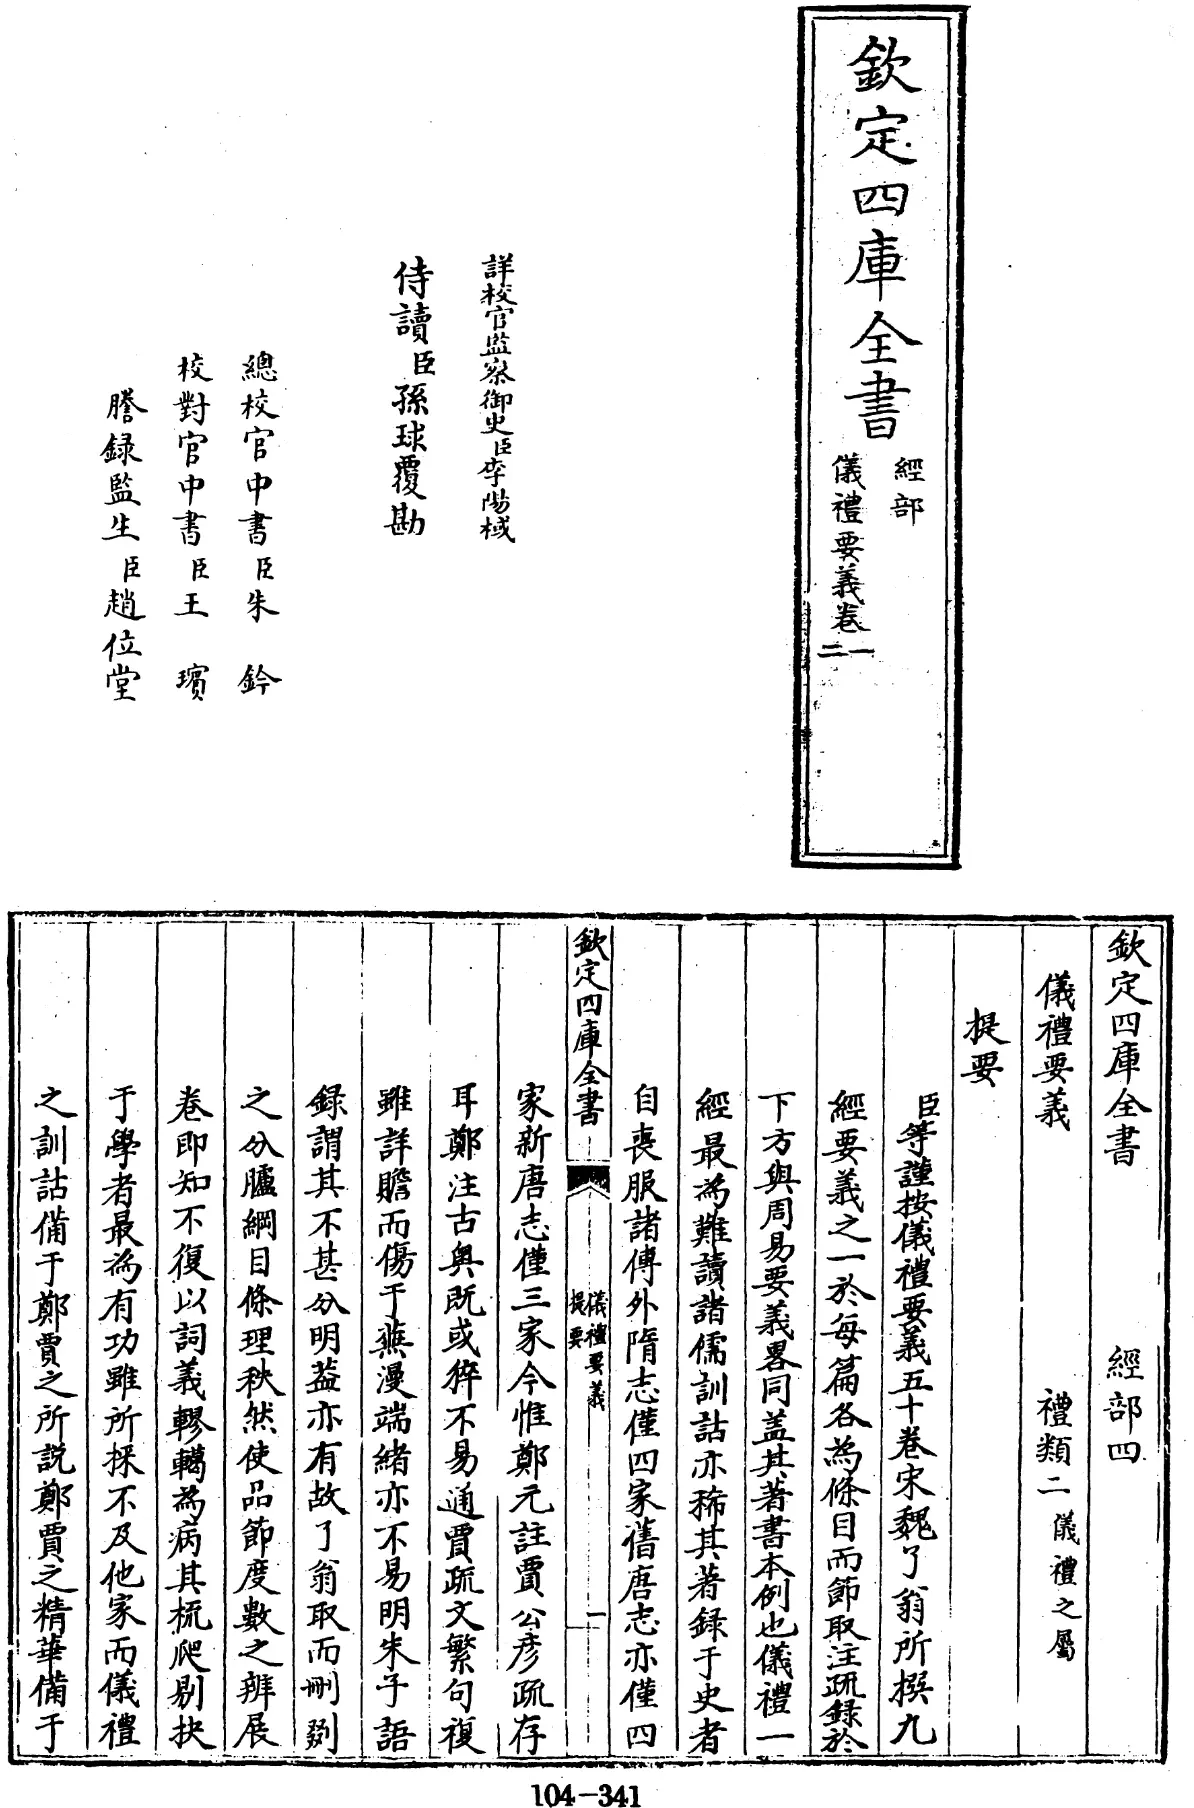 欽定四庫全書
經部
儀禮要義卷一
二
詳校官監察御史臣李陽棫
侍讀臣孫球覆勘
總校官中書臣朱 鈐
校對官中書臣王 璸
謄録監生臣趙位堂
欽定四庫全書 經部四
儀禮要義 禮類二儀禮之屬
提要
臣等謹按儀禮要義五十卷宋魏了翁所撰九
經要義之一於每篇各為條目而節取注疏録於
下方與周易要義畧同蓋其著書本例也儀禮一
經最為難讀諸儒訓詁亦稀其著録于史者
自喪服諸傳外隋志僅四家舊唐志亦僅四
欽定四庫全書
儀禮要義
提要
一
家新唐志僅三家今惟鄭元註賈公彥疏存
耳鄭注古奧既或猝不易通賈疏文繁句複
雖詳贍而傷于蕪漫端緒亦不易明朱子語
録謂其不甚分明葢亦有故了翁取而刪剟
之分臚綱目條理秩然使品節度數之辨展
卷即知不復以詞義轇轕為病其梳爬剔抉
于學者最為有功雖所採不及他家而儀禮
之訓詁備于鄭賈之所説鄭賈之精華備于
104-341